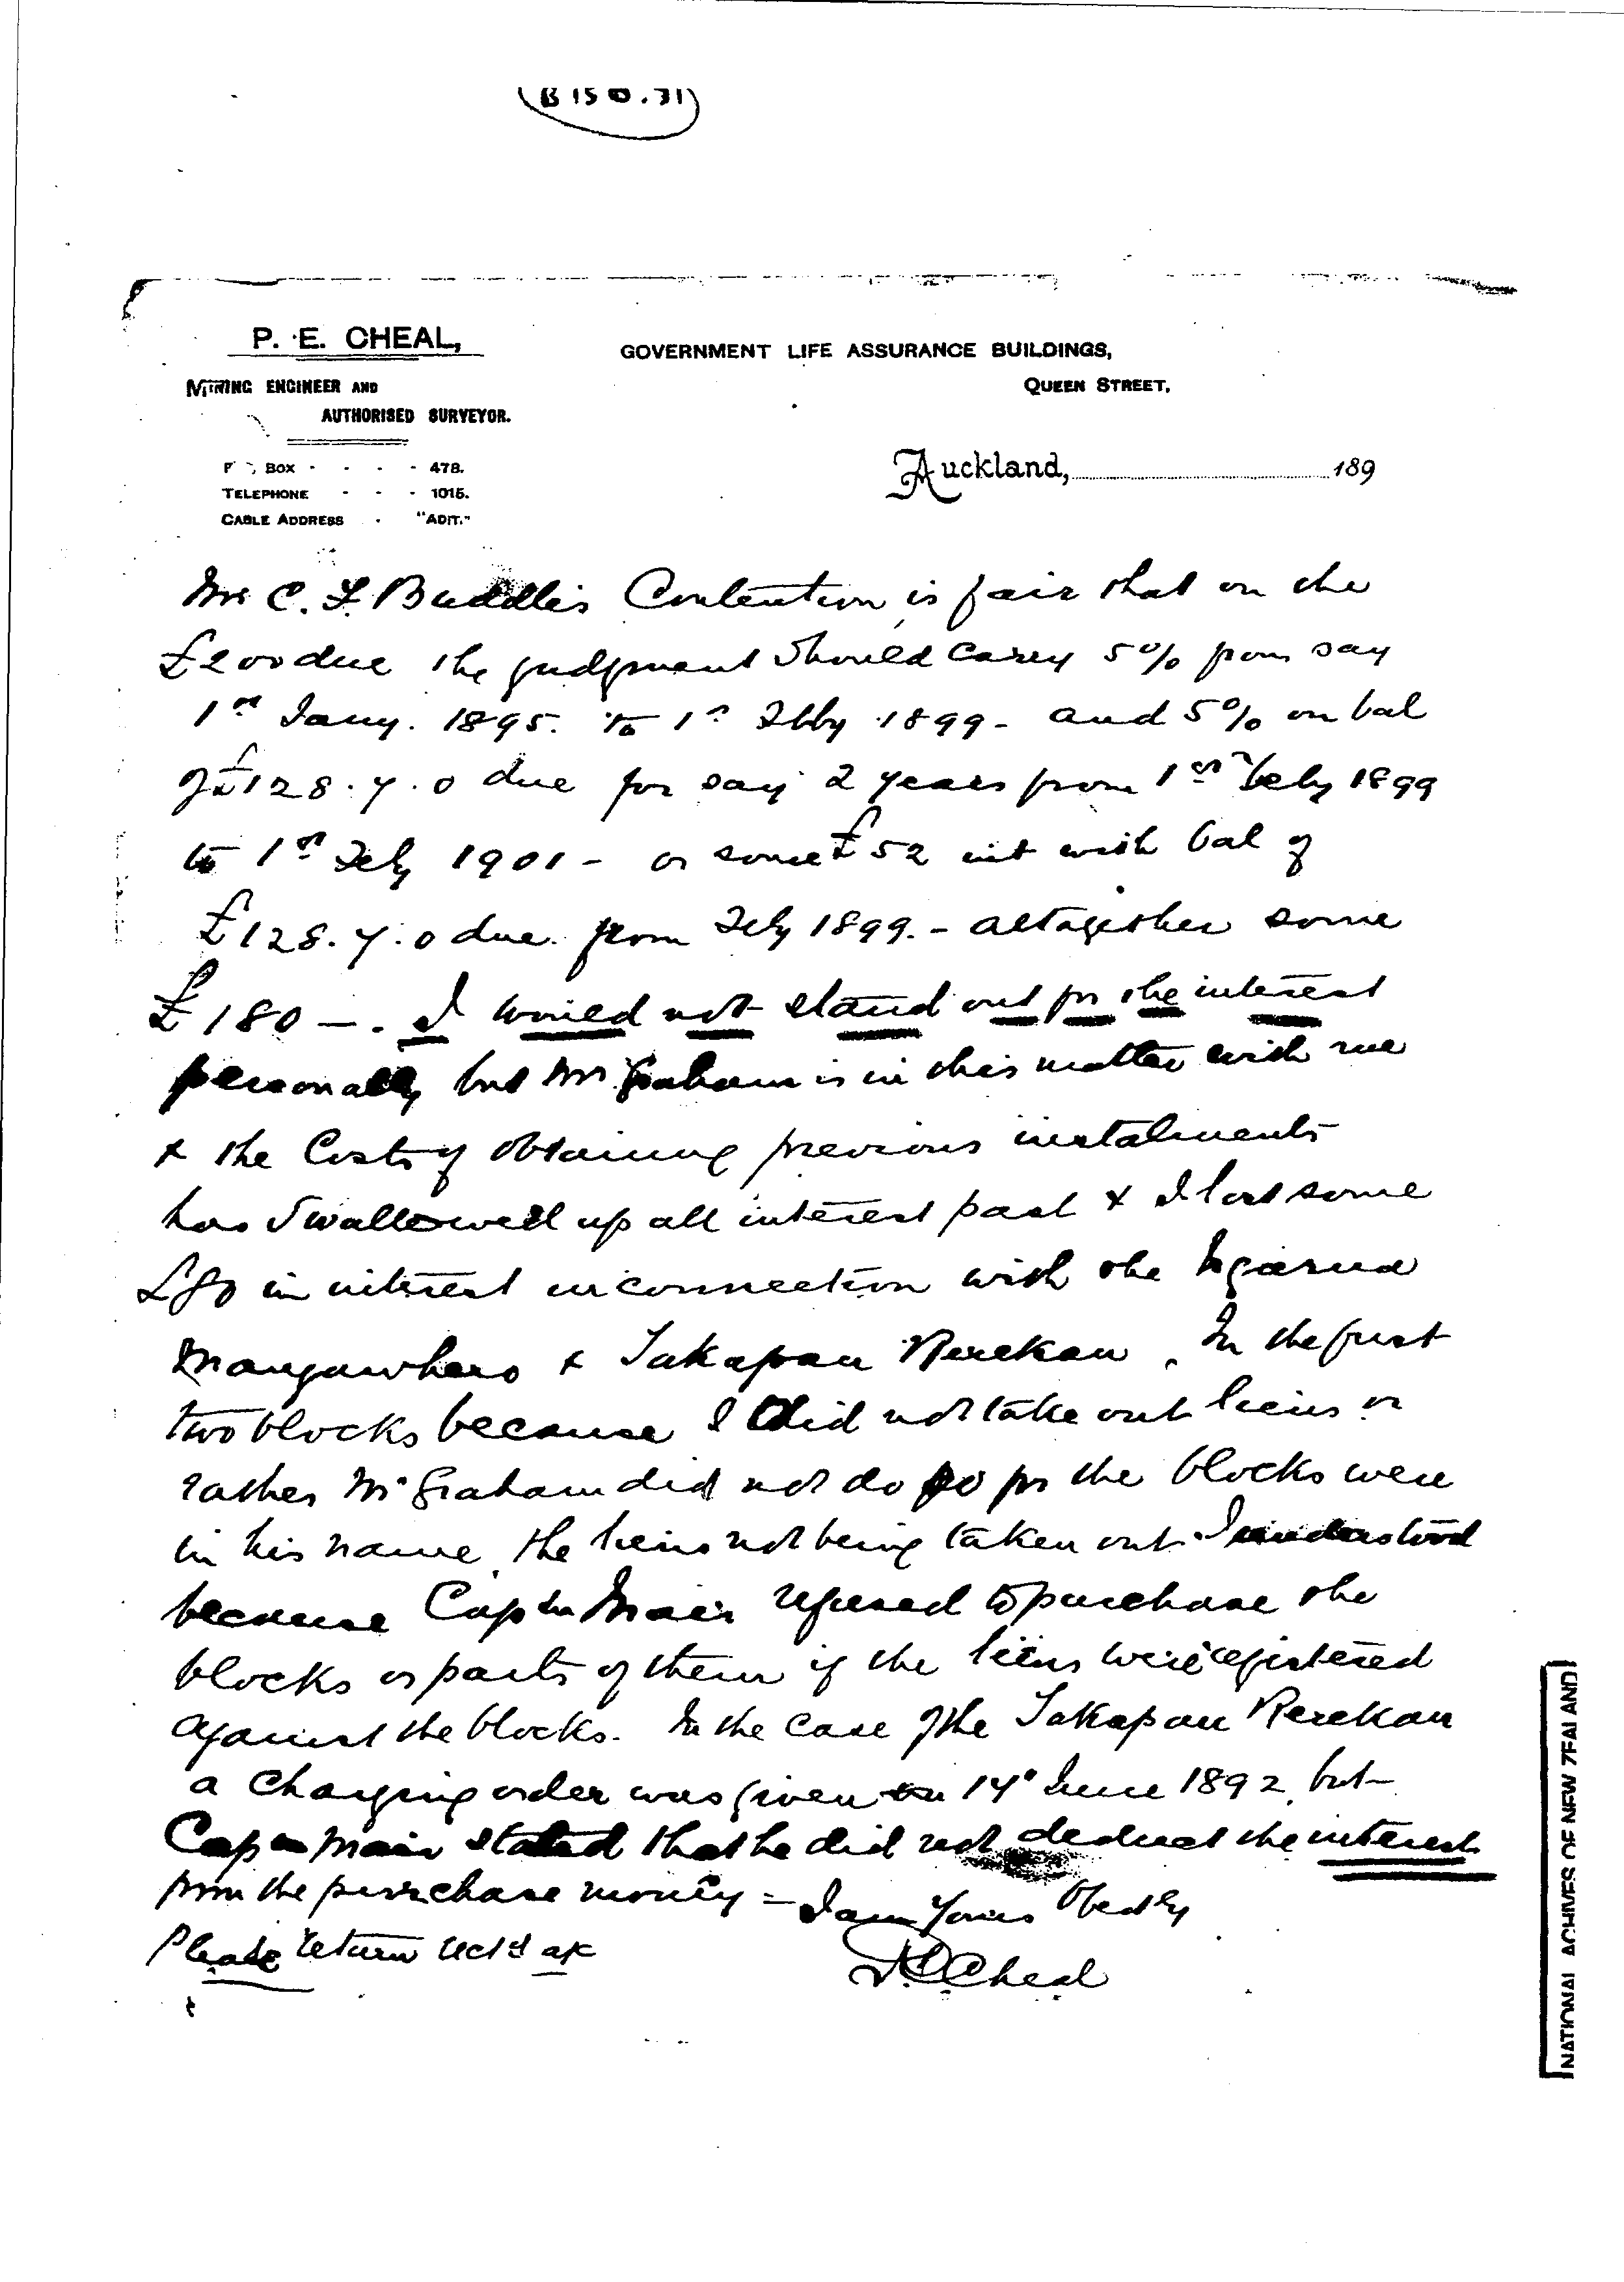 (B 150.31)
P. E. CHEAL,
MINING ENGINEER AND
AUTHORISED SURVEYOR.
BOX - - - - 478.
TELEPHONE - - - 1015.
CABLE ADDRESS - "ADIT."
GOVERNMENT LIFE ASSURANCE BUILDINGS,
QUEEN STREET,
Auckland, 189
Mr C. F. Buddle's Contention is fair that on the
£200 due the judgment should carry 5% from say
1st Jany. 1895. to 1st Feby 1899 - and 5% on bal
of £128.7.0 due for say 2 years from 1st Feby 1899
to 1st Feby 1901 - or some £52 int with bal of
£128.7.0 due from Feby 1899. - altogether some
£180 -. I would not stand out for the interest
personally but Mr Graham is in this matter with me
& the Costs of Obtaining previous instalments
has swallowed up all interest past & I lost some
£80 in interest in connection with the Ngarua
Mangawhero & Takapau Rerekau. In the first
two blocks because I did not take out liens or
rather Mr Graham did not do so for the blocks were
in his name, the liens not being taken out I understood
because Captn Mair refused to purchase the
blocks or parts of them if the liens were registered
against the blocks. In the case of the Takapau Rerekau
a Charging order was given on 14° June 1892, but
Capn Mair stated that he did not deduct the interest
from the purchase money = I am Yours Obedtly
Please return acct
P.E. Cheal
NATIONAL ARCHIVES OF NEW ZEALAND